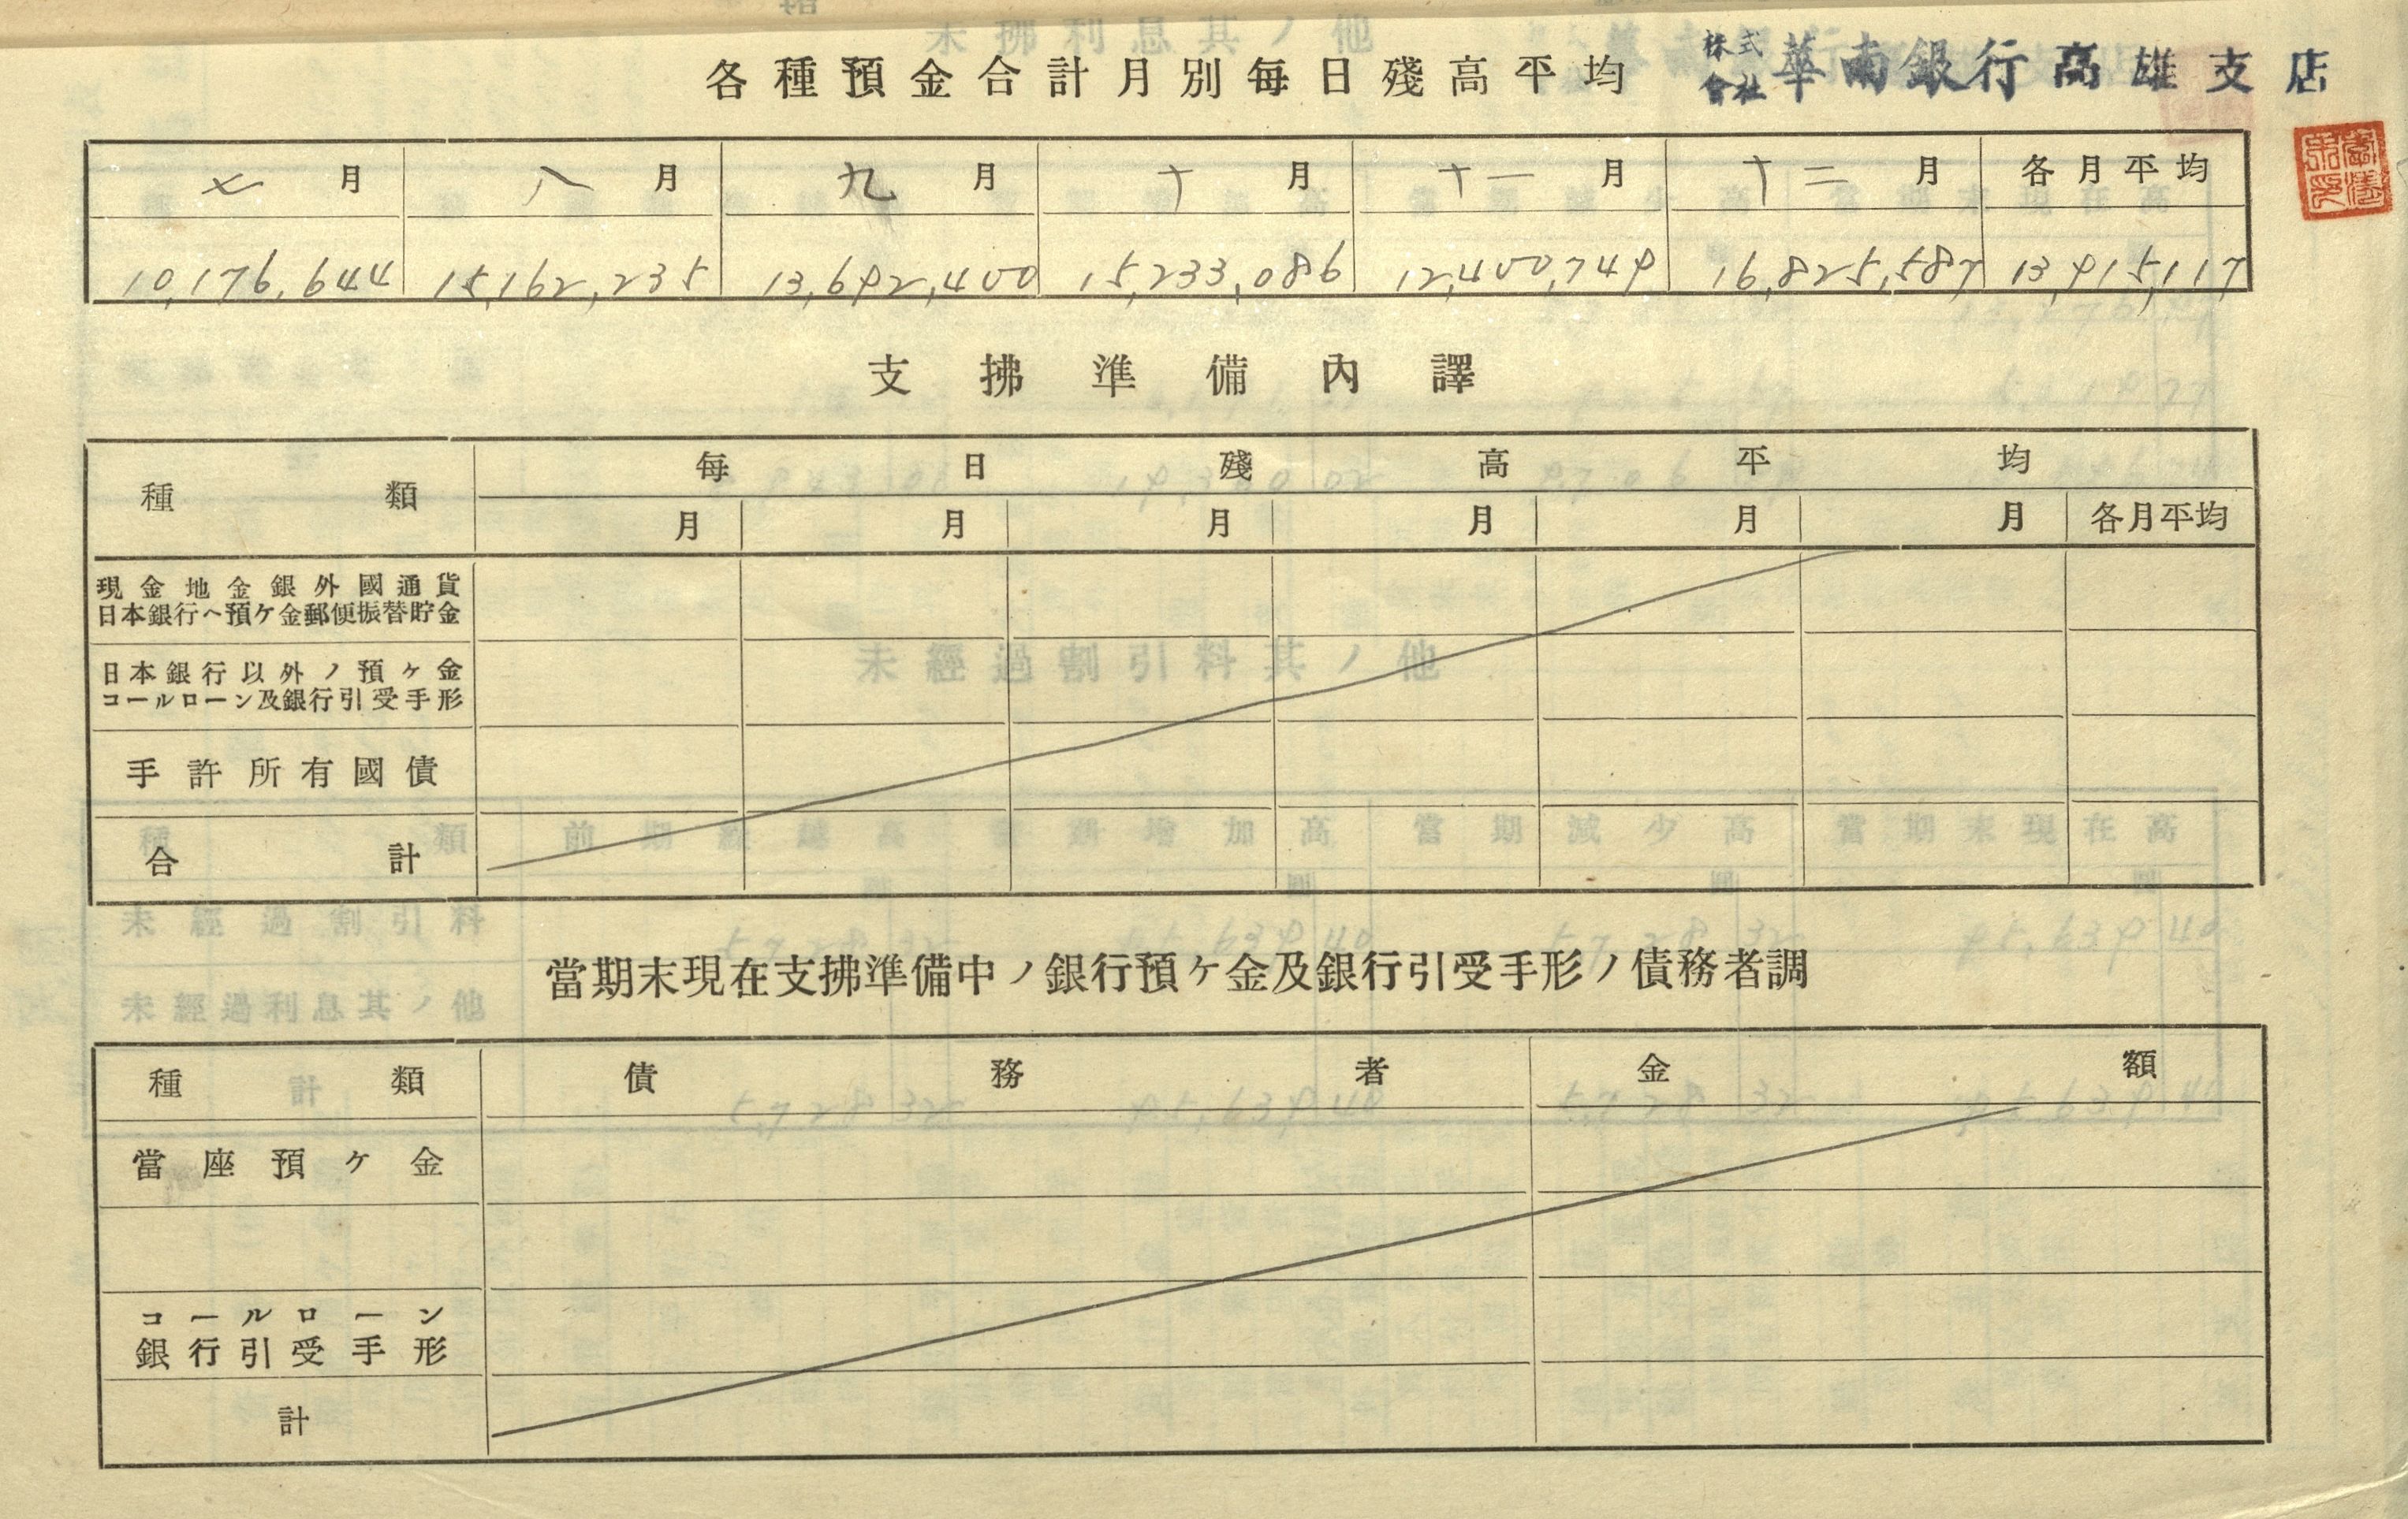 各種預金合計月別每日殘高平均
株式會社 華南銀行高雄支店
七月 八月 九月 十月 十一月 十二月 各月平均
10,176,644 15,162,235 13,692,400 15,233,086 12,400,749 16,825,587 13,915,117
支拂準備內譯
種類 每日殘高平均
月 月 月 月 月 月 各月平均
現金地金銀外國通貨
日本銀行へ預ケ金郵便振替貯金
日本銀行以外ノ預ヶ金
コールローン及銀行引受手形
手許所有國債
合計
當期末現在支拂準備中ノ銀行預ヶ金及銀行引受手形ノ債務者調
種類 債務者 金額
當座預ケ金
コールローン
銀行引受手形
計